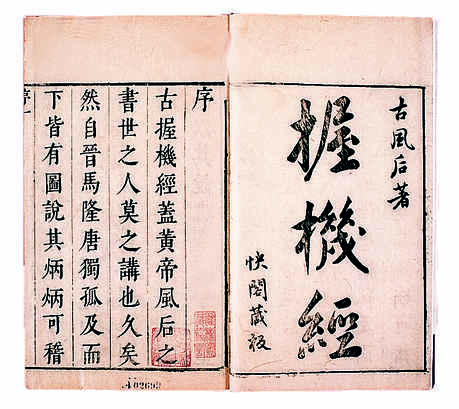 古風后著
握機經
快閣藏板
序
古握機經蓋黃帝風后之
書世之人莫之講也久矣
然自晉馬隆唐獨孤及而
下皆有圖說其炳炳可稽
A02693